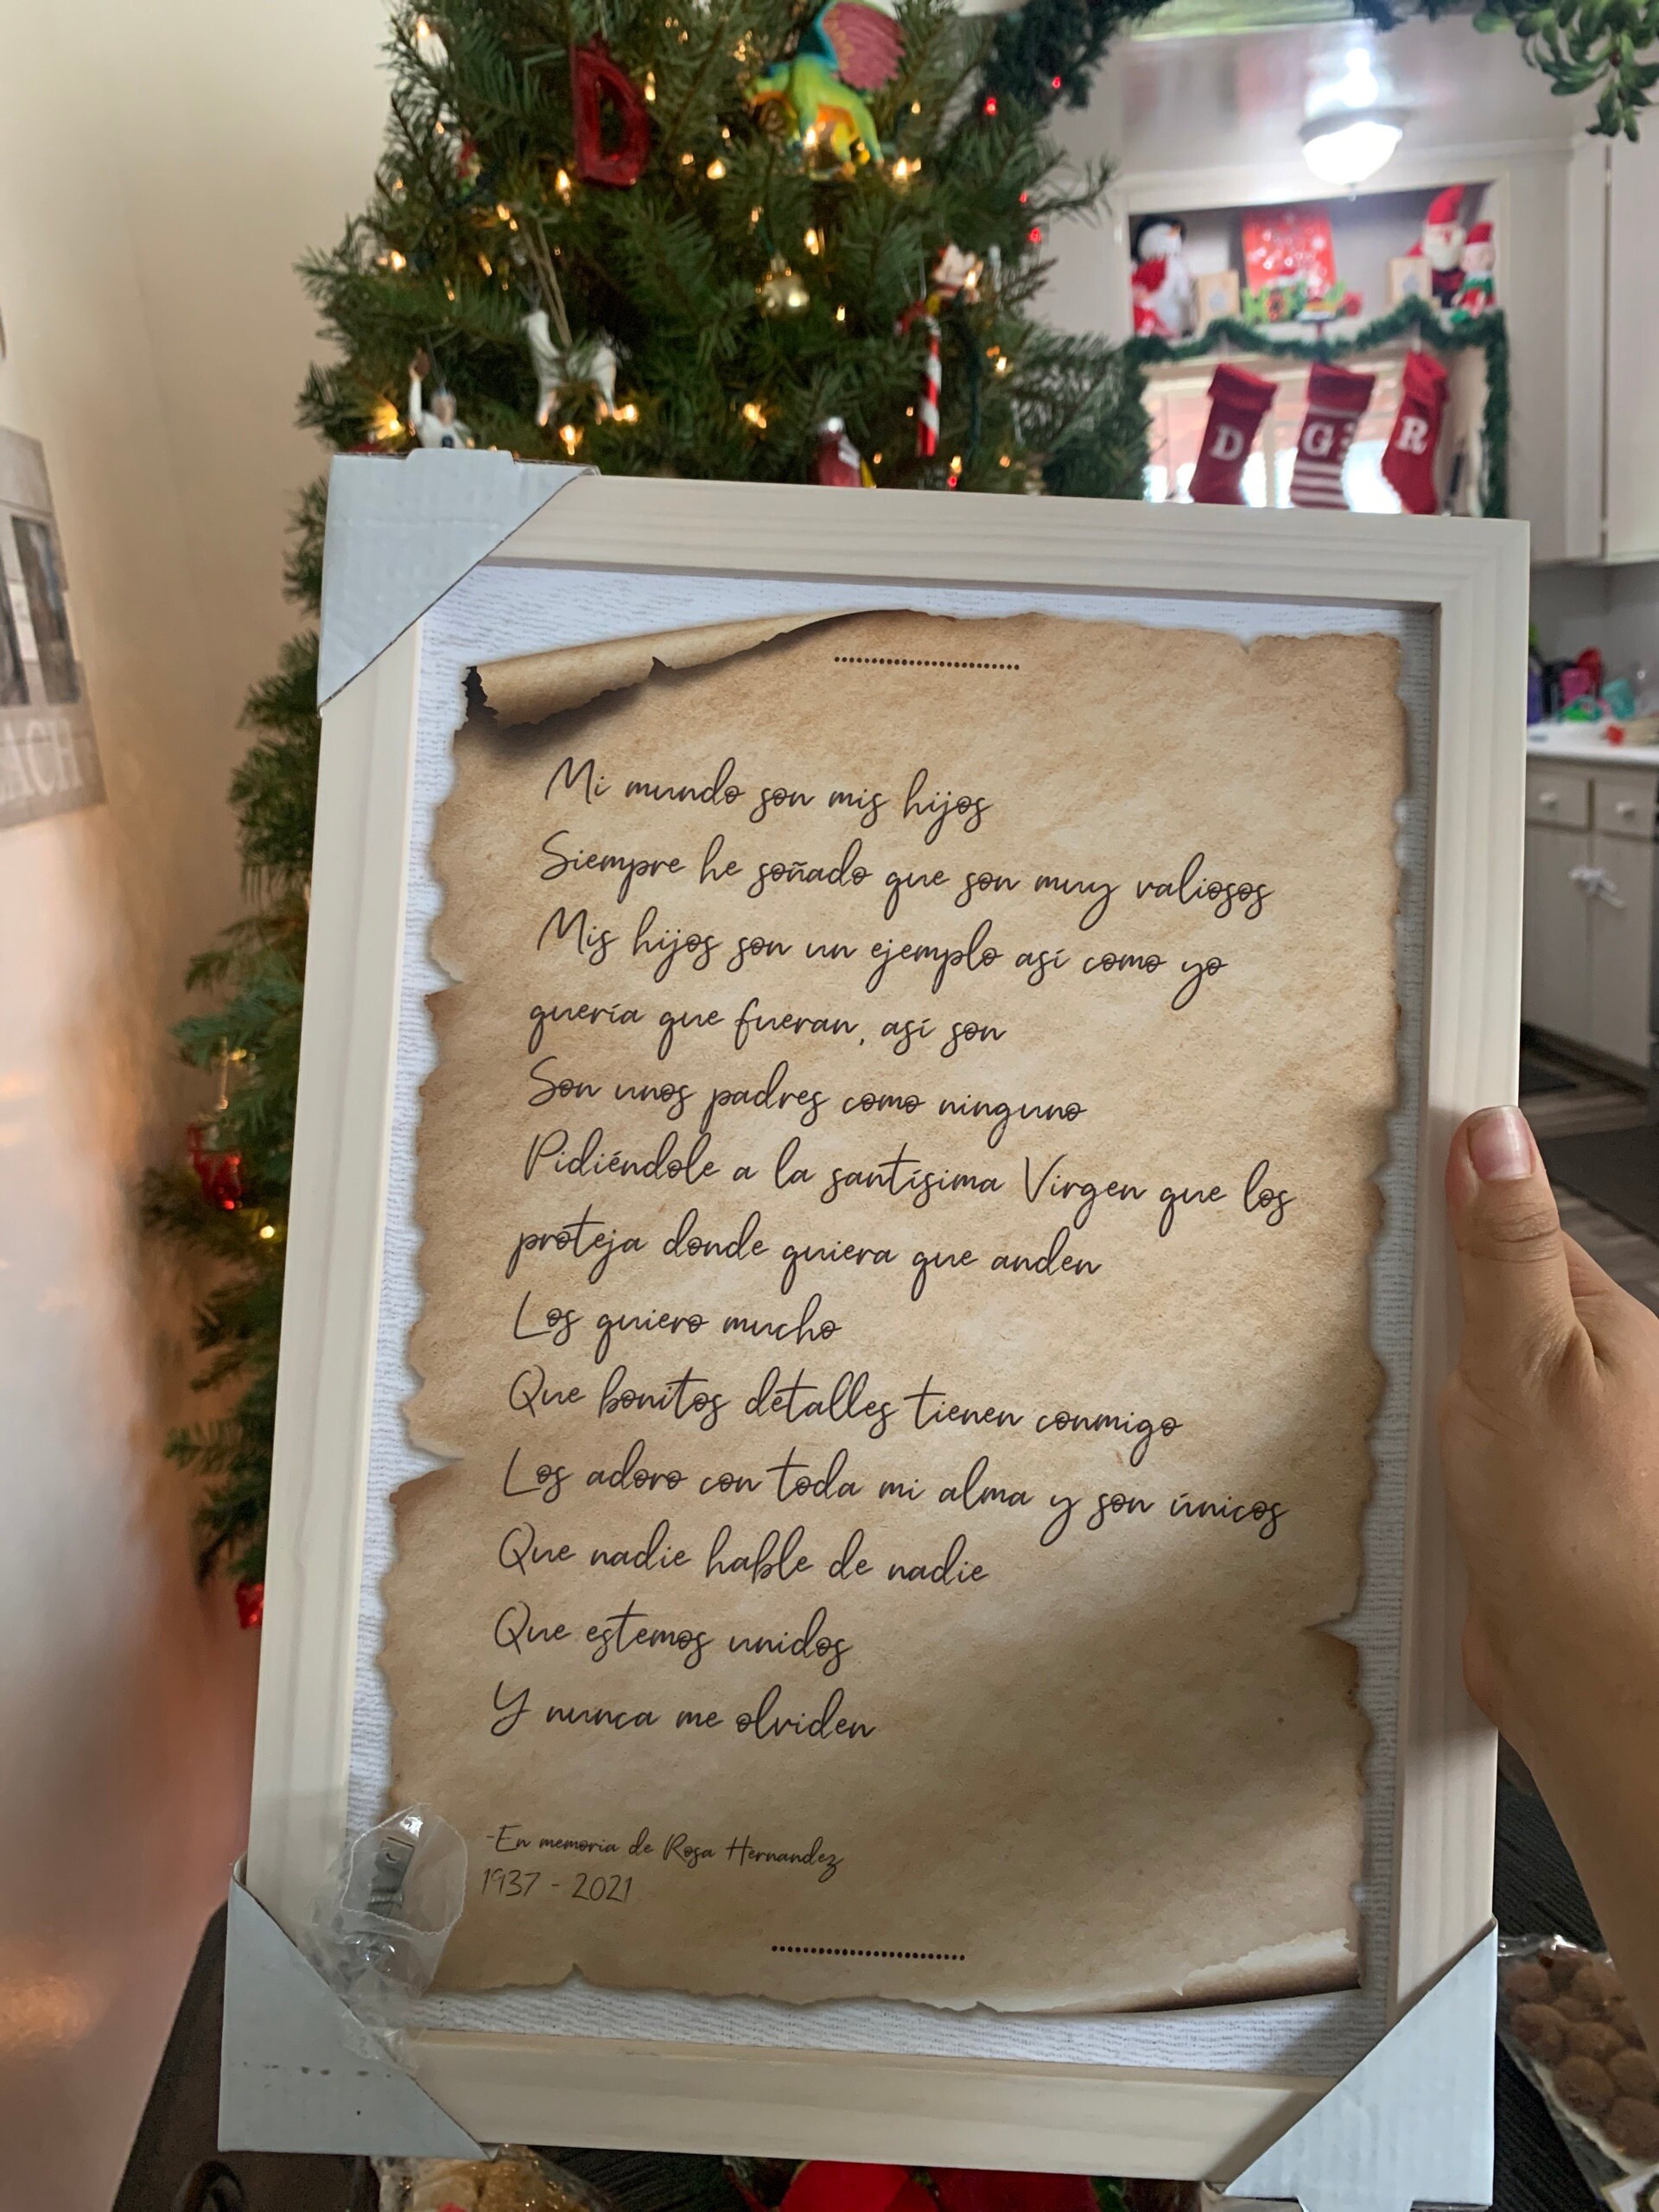 D
D G R
ACH
Mi mundo son mis hijos
Siempre he soñado que son muy valiosos
Mis hijos son un ejemplo así como yo
quería que fueran, así son
Son unos padres como ninguno
Pidiéndole a la santísima Virgen que los
proteja donde quiera que anden
Los quiero mucho
Que bonitos detalles tienen conmigo
Los adoro con toda mi alma y son únicos
Que nadie hable de nadie
Que estemos unidos
Y nunca me olviden
-En memoria de Rosa Hernandez
1937 - 2021